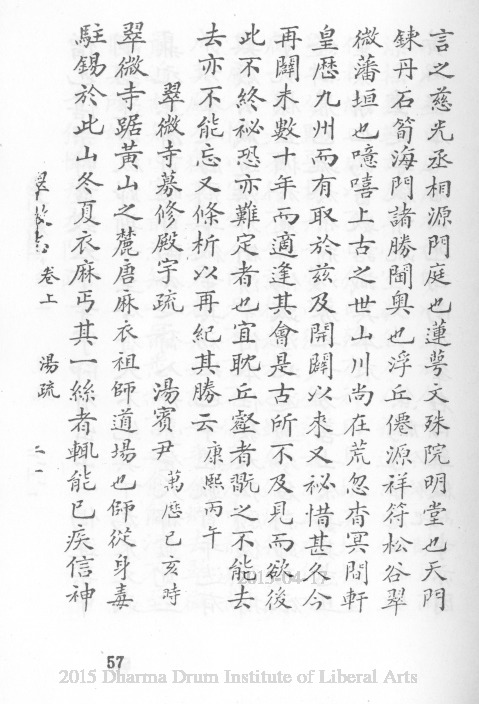 言之慈光丞相源門庭也蓮萼文殊院明堂也天門
鍊丹石筍海門諸勝閫奧也浮丘僊源祥符松谷翠
微藩垣也噫嘻上古之世山川尚在荒忽杳冥間軒
皇歷九州而有取於茲及開闢以來又祕惜甚久今
再闢未數十年而適逢其會是古所不及見而欲後
此不終祕恐亦難定者也宜耽丘壑者翫之不能去
去亦不能忘又條析以再紀其勝云 康熙丙午
翠微寺募修殿宇疏 湯賓尹 萬歷己亥時
翠微寺踞黃山之麓唐麻衣祖師道場也師從身毒
駐錫於此山冬夏衣麻丐其一絲者輒能已疾信神
卷上 湯疏
2015-04-17
57
2015 Dharma Drum Institute of Liberal Arts